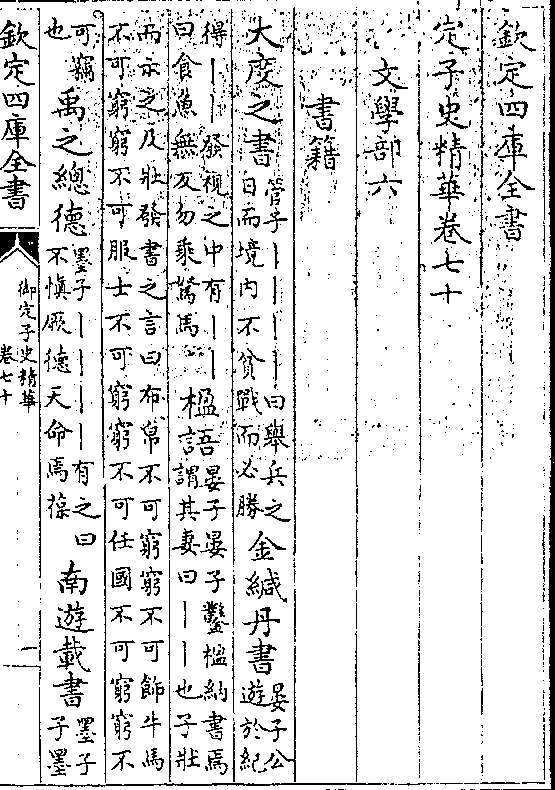 欽定四庫全書
定子史精華卷七十
文學部六
書籍
大度之書管子丨丨丨丨曰舉兵之日而境内不貧戰而必勝金緘丹書晏子公遊於紀
得丨丨發視之中有丨丨曰食魚無反勿乘駑馬楹語晏子晏子鑿楹納書焉謂其妻曰丨丨也子壯
而示之及壯發書之言曰布帛不可窮窮不可飾牛馬不可窮窮不可服士不可窮窮不可任國不可窮窮不
可竊也禹之總德墨子丨丨丨丨有之曰不慎厥德天命焉葆南遊載書墨子子墨
欽定四庫全書
御定子史精華
卷七十
一